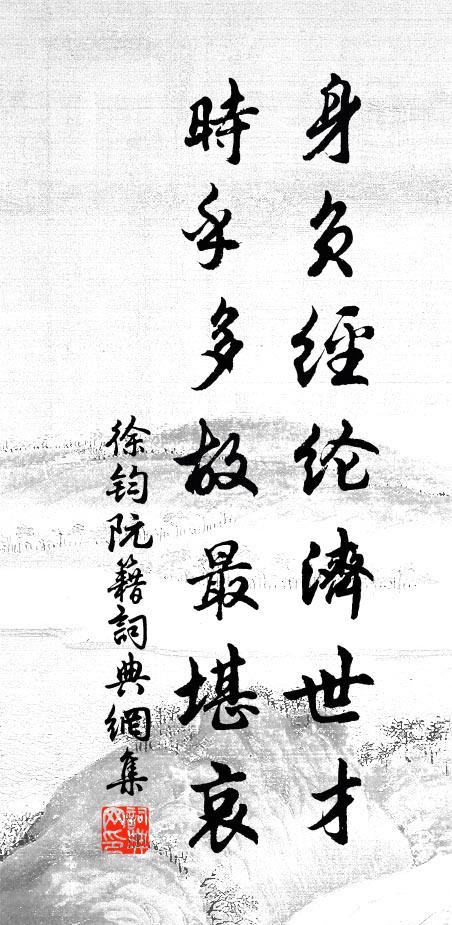 身負經纶濟世才
時乎多故最堪哀
徐钧阮籍詞典網集